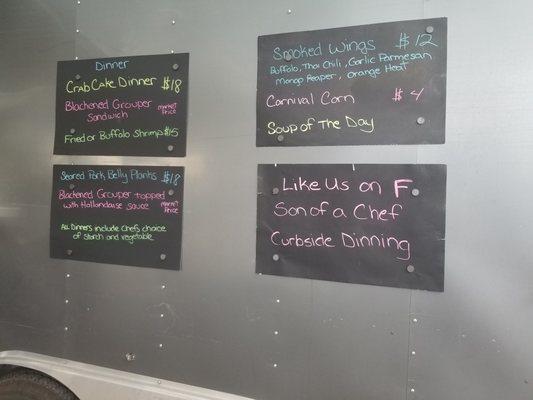 Dinner
Crab Cake Dinner $18
Blackened Grouper Sandwich market Price
Fried or Buffalo Shrimp $15
Seared Pork Belly Planks $18
Blackened Grouper topped
with Hollandaise sauce market Price
All Dinners include Chefs choice
of starch and vegetable
Smoked Wings $12
Buffalo, Thai Chili, Garlic Parmesan
Mango Reaper, Orange Heat
Carnival Corn $4
Soup of The Day
Like Us on F
Son of a Chef
Curbside Dinning